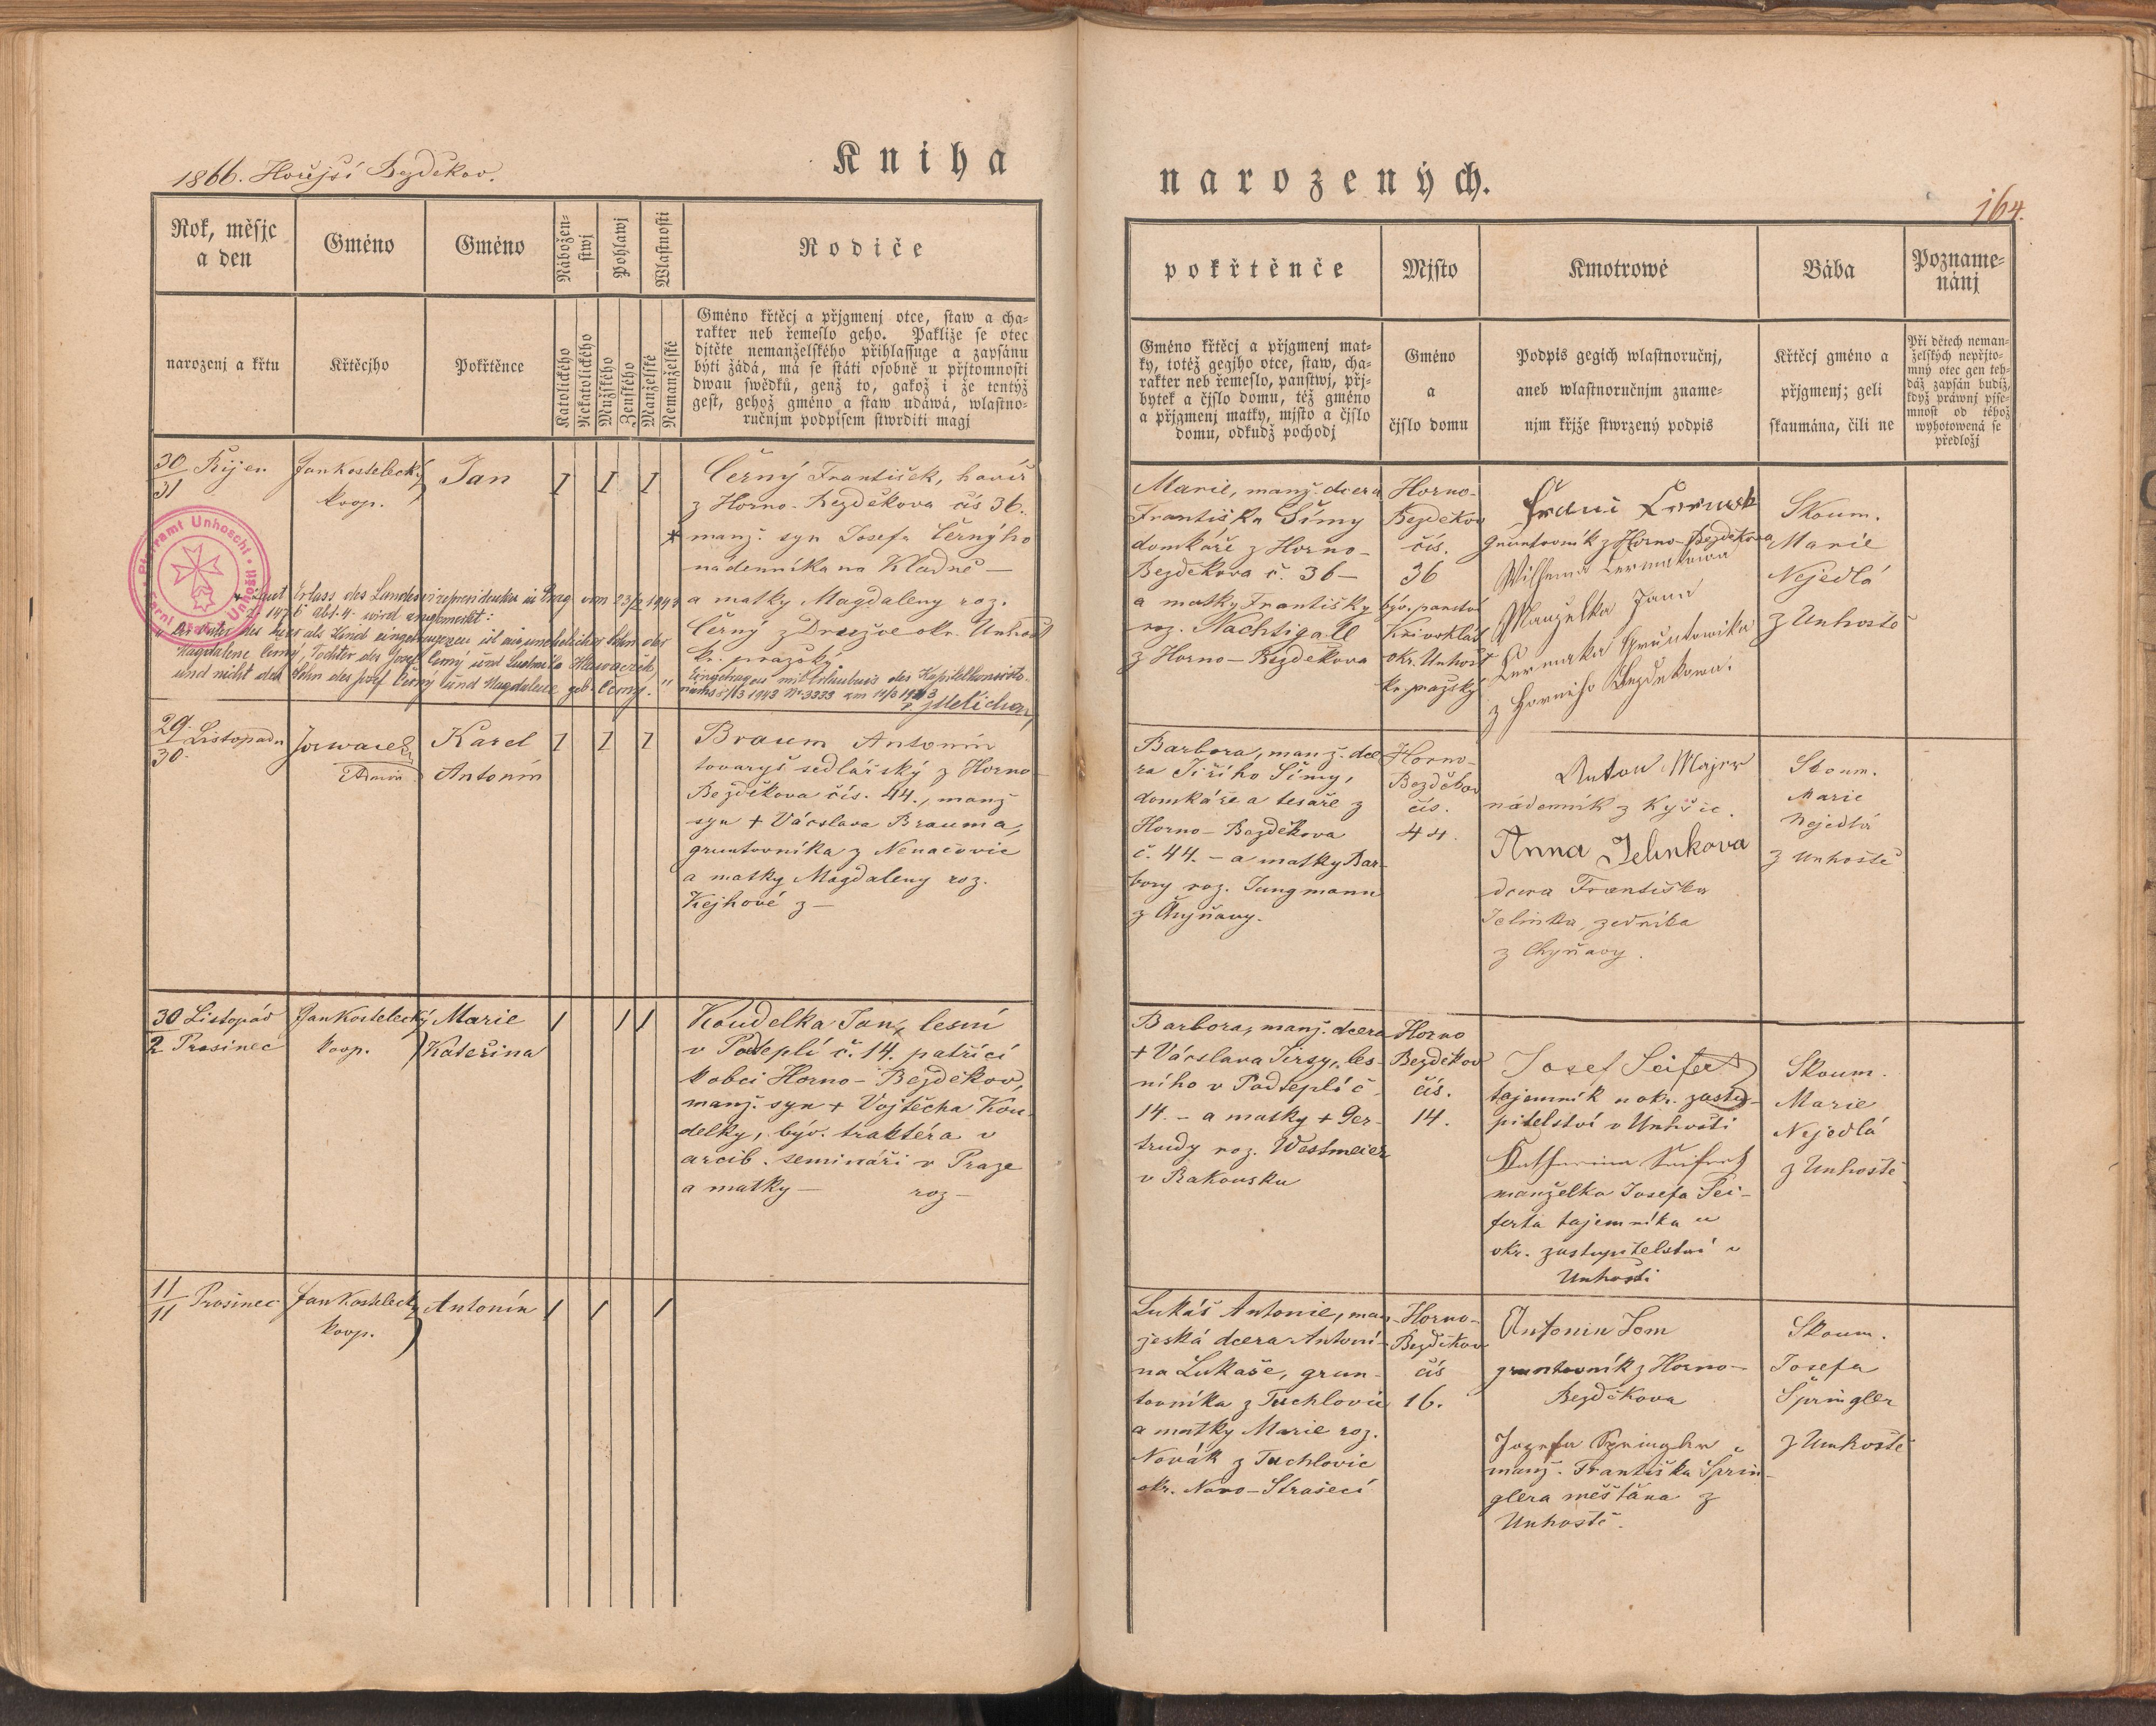 1866. Hořejší Bezděkov.
Kniha
narozených.
164.
Rok, měsjc
a den
Gméno
Gméno
Nábožen-
stwj
Pohlawj
Wlastnosti
Rodiče
narozenj a křtu
Křtěcjho
Pokřtěnce
Katolického
Nekatolického
Mužského
Ženského
Manželské
Nemanželské
Gméno křtěcj a přjgmenj otce, staw a cha-
rakter neb řemeslo geho. Pakliže se otec
djtěte nemanželského přihlassuge a zapsánu
býti žádá, má se státi osobně u přjtomnosti
dwau swědků, genž to, gakož i že tentýž
gest, gehož gméno a staw udáwá, wlastno-
ručnjm podpisem stwrditi magj
pokřtěnče
Mjsto
Kmotrowé
Bába
Pozname-
nánj
Gméno křtěcj a přjgmenj mat-
ky, totéž gegjho otce, staw, cha-
rakter neb řemeslo, panstwj, přj-
bytek a čjslo domu, též gméno
a přjgmenj matky, mjsto a čjslo
domu, odkudž pochodj
Gméno
a
čjslo domu
Podpis gegich wlastnoručnj,
aneb wlastnoručnjm zname-
njm křjže stwrzený podpis
Křtěcj gméno a
přjgmenj; geli
skaumána, čili ne
Při dětech neman-
želských nepřjto-
mný otec gen teh-
dáž zapsán budiž,
když práwnj pjse-
mnost od téhož
wyhotowená se
předložj
30 Říjen
31
Jan Kostelecký
koop.
Jan
1 1 1
Černý František, havíř
z Horno-Bezděkova čís 36.
* manž. syn Josefa Černýho
nadenníka na Kladně —
a matky Magdaleny roz.
Černý z Družce okr. Unhošť
kr. pražský
Pfarramt Unhoscht
Farní úřad Unhošť
Laut Erlass des Landesvizepräsidenten in Prag vom 23/2 1943
Abt. 4. wird angemerkt:
"Der Vater des hier als Kind eingetragenen ist ein unehelicher Sohn der
Magdalene Černý, Tochter des Josef Černý und Ludmila
und nicht der Sohn des Josef Černý und Magdalene geb. Černý."
Eingetragen mit des Kapitelkonsisto-
riums 1943 Nr 3333 am 1943
Marie, manž. dcera
Františka Šímy
domkáře z Horno-
Bezděkova č. 36 —
a matky Františky
roz. Nachtigall
z Horno-Bezděkova
Horno-
Bezděkov
čís.
36
býv. panství
Křivoklát
okr. Unhošť
kr. pražský
gruntovník z Horno-Bezděkova
Manželka Jana
Čermaka Gruntownika
z Horního Bezdekowa.
Skoum.
Marie
Nejedlá
z Unhoště
29 Listopadu
30
Admin.
Karel
Antonín
1 1 1
Braum Antonín
tovaryš sedlářský z Horno-
Bezděkova čís. 44., manž
syn + Václava Brauma,
gruntovníka z Nenačovic
a matky Magdaleny roz.
Kejhové z —
Barbora, manž. dce-
ra Jiřího Šímy,
domkáře a tesaře z
Horno-Bezděkova
č. 44. - a matky Bar-
bory roz. Jungmann
z Chyňavy.
Horno-
Bezděkov
čís.
44.
Anton Majer
nádenník z Kyšic.
Anna Jelinkova
dcera Františka
Jelínka, zedníka
z Chyňavy.
Skoum.
Marie
Nejedlá
z Unhoště
30 Listopád
2 Prosinec
Jan Kostelecký
koop.
Marie
Kateřina
1 1 1
Koudelka Jan, lesní
v Podteplí č. 14. patřící
k obci Horno-Bezděkov,
manž. syn + Vojtěcha Kou-
delky, býv. traktéra v
arcib. semináři v Praze
a matky — roz —
Barbora, manž. dcera
+ Václava Jirsy, les-
ního v Podteplí č.
14. - a matky + Ger-
trudy roz. Westmeier
v Rakousku
Horno
Bezděkov
čís.
14.
Josef Seifert
tajemník u okr. zastu-
pitelství v Unhošti
Katharina Seifert
manželka Josefa Sei-
ferta tajemníka u
okr. zastupitelství v
Unhošti
Skoum.
Marie
Nejedlá
z Unhoště
11 Prosinec
11
Jan Kostelecký
koop.
Antonín
1 1 1
Lukáš Antonie, man-
želská dcera Antoní-
na Lukaše, grun-
tovníka z Tuchlovic
a matky Marie roz.
Novák z Tuchlovic
okr. Novo-Strašecí
Horno-
Bezděkov
čís
16.
Antonin Tom
gruntovník z Horno-
Bezděkova
Jozefa Springler
manž. Františka Šprin-
glera měšťana z
Unhoště.
Skoum.
Josefa
Špringler
z Unhoště